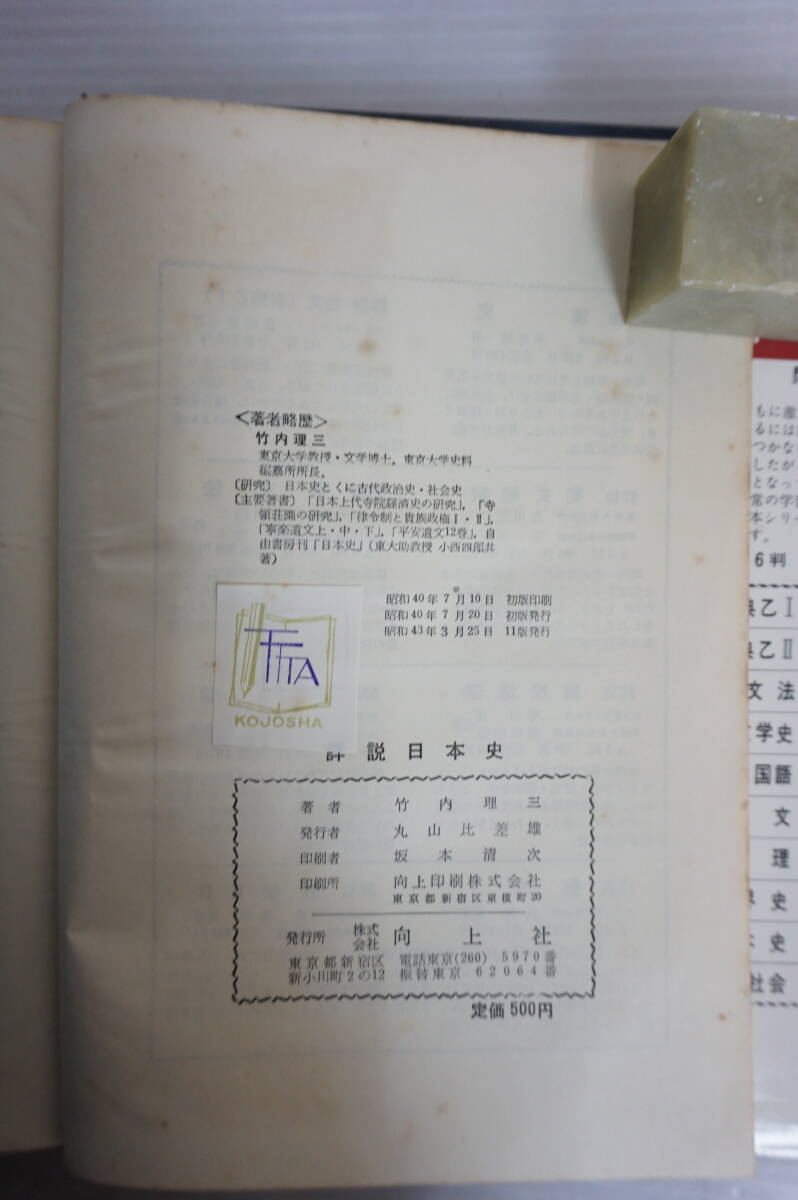 <著者略歴>
竹内理三
東京大学教授・文学博士。東京大学史料
編纂所所長。
〔研究〕 日本史とくに古代政治史・社会史
〔主要著書〕「日本上代寺院経済史の研究」,「寺
領荘園の研究」,「律令制と貴族政権Ⅰ・Ⅱ」,
「寧楽遺文上・中・下」,「平安遺文12巻」, 自
由書房刊「日本史」(東大助教授 小西四郎共
著)
昭和40年7月10日 初版印刷
昭和40年7月20日 初版発行
昭和43年3月25日 11版発行
KOJOSHA
詳説日本史
著者 竹内理三
発行者 丸山比差雄
印刷者 坂本清次
印刷所 向上印刷株式会社
東京都新宿区東榎町20
発行所 株式会社 向上社
東京都新宿区 電話東京(260) 5970番
新小川町2の12 振替東京 62064番
定価500円
もに激
るには
つかな
したが
となっ
常の学習
本シリー
す。
6判
典乙Ⅰ
典乙Ⅱ
文法
文学史
国語
文
理
史
史
社会